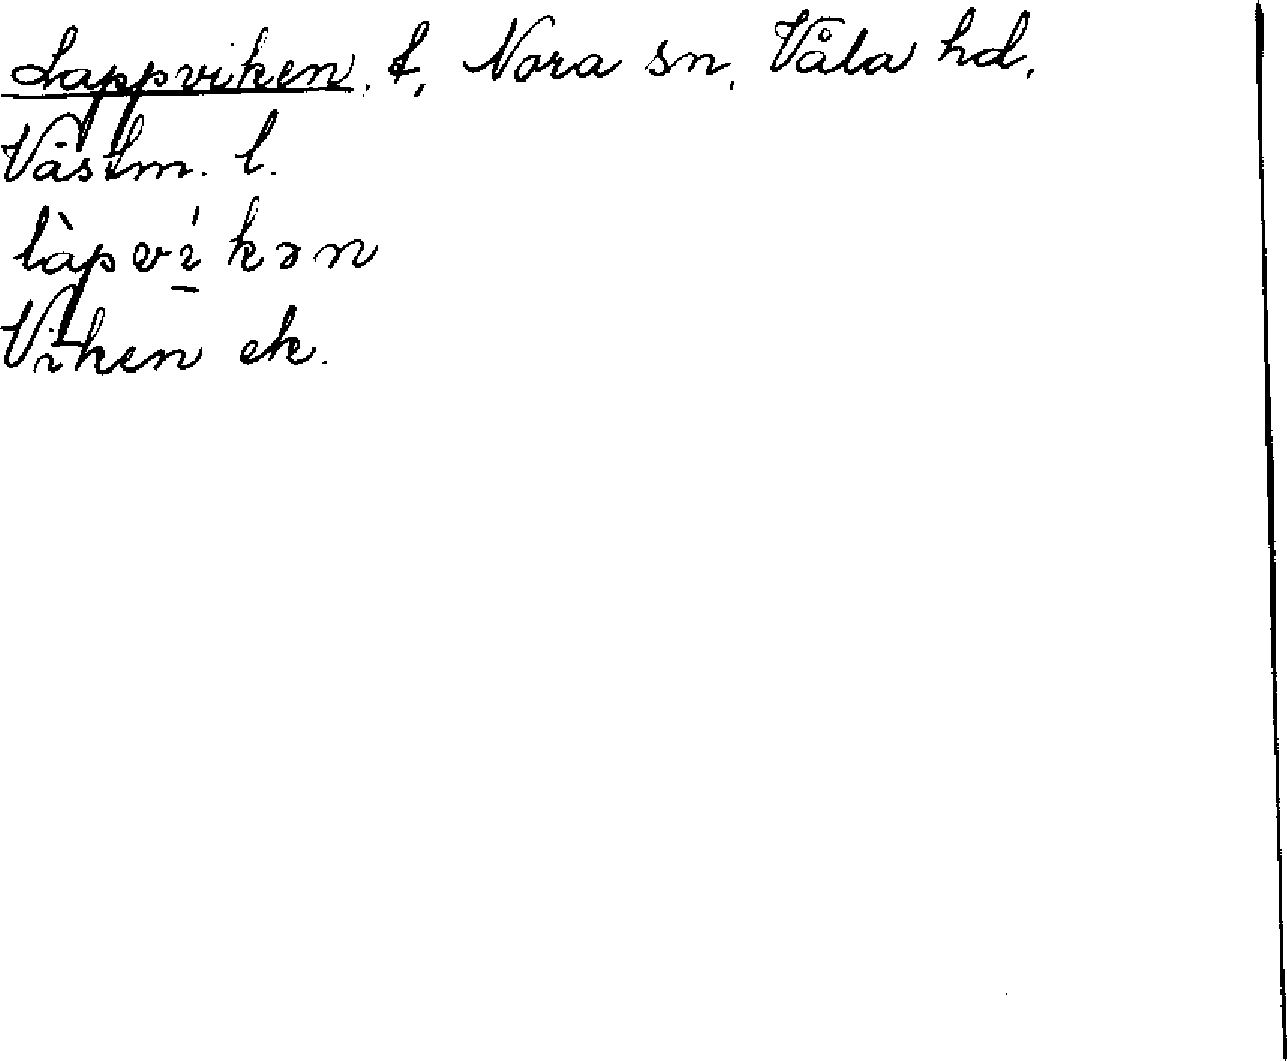 Lappviken. t, Nora sn, Våla hd,
Västm. l.
làpví̱kən
Viken ek.